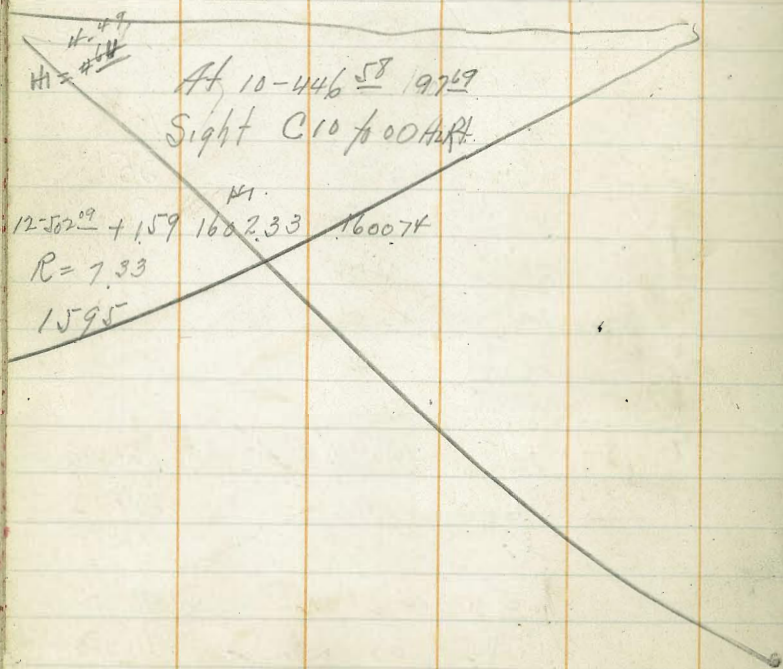 4.49
HI =
At 10-446 58 9769
Sight C10 for 00 Az Rt.
HI.
12-502 09 + 1.59 1602.33 1600 74
R = 7.33
1595